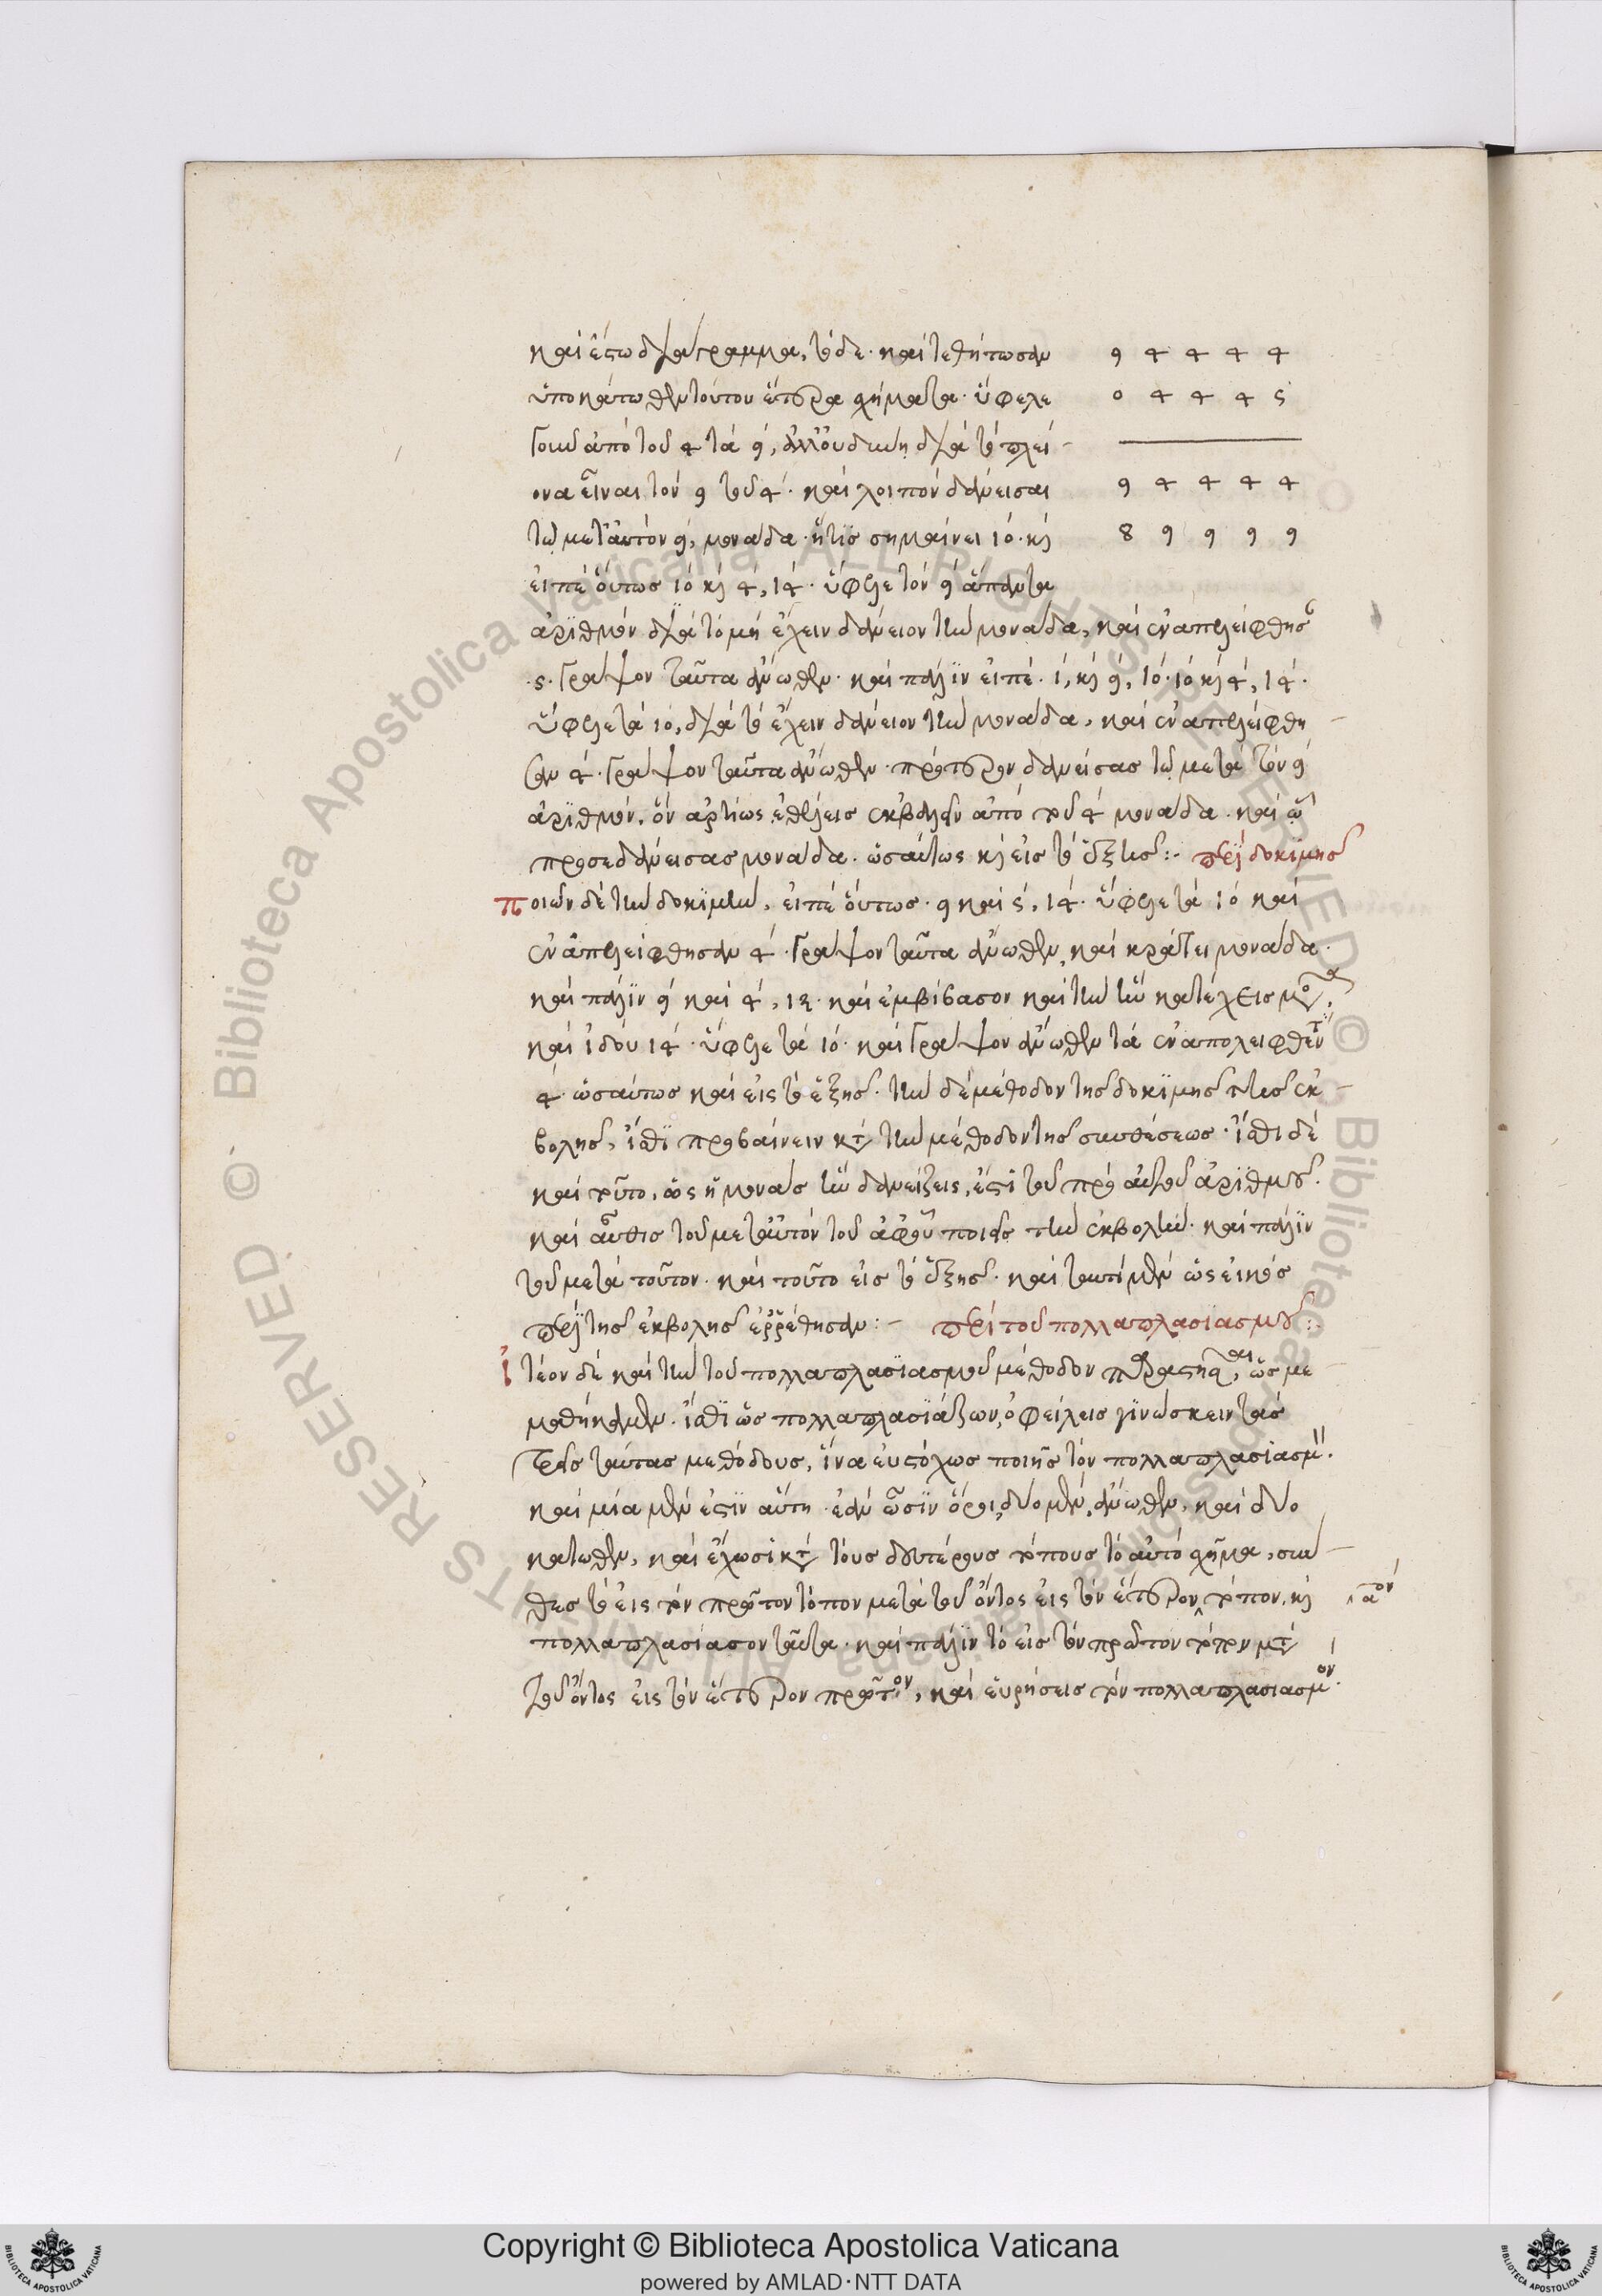 καὶ ἔστω διάγραμμα, τόδε· καὶ τεθήτωσαν
9 4 4 4 4
ὑποκάτωθεν τούτου ἕτερα σχήματα· ὕφελε
0 4 4 4 5
γοῦν ἀπὸ τοῦ 4 τὰ 9, ἀλλ' οὐ δύνῃ διὰ τὸ πλεί-
ονα εἶναι τὸν 9 τοῦ 4· καὶ λοιπὸν δάνεισαι
9 4 4 4 4
τῷ μετ' αὐτὸν 9, μονάδα· ἥτις σημαίνει 10· κὶ
8 9 9 9 9
εἰπὲ οὕτως 10 κὶ 4, 14· ὕφελε τὸν 9 ἅπαντα
ἀριθμὸν διὰ τὸ μὴ ἔχειν δάνειον τὴν μονάδα, καὶ ἐναπελείφθησ
·5· γράψον ταῦτα ἄνωθεν· καὶ πάλιν εἰπέ· 1, κὶ 9, 10· 10 κὶ 4, 14·
ὕφελε τὰ 10, διὰ τὸ ἔχειν δάνειον τὴν μονάδα, καὶ ἐναπελείφθη-
σαν 4· γράψον ταῦτα ἄνωθεν· πρότερον δανείσας τῷ μετὰ τὸν 9
ἀριθμόν, ὃν ἀρτίως ἐθέλεις ἐκβαλεῖν ἀπὸ τοῦ 4 μονάδα· καὶ ᾧ
προσεδάνεισας μονάδα· ὡσαύτως κὶ εἰς τὸ ἑξῆς:· περὶ δοκίμης
ποιῶν δὲ τὴν δοκιμήν, εἰπὲ οὕτως· 9 καὶ 5, 14· ὕφελε τὰ 10 καὶ
ἐναπελείφθησαν 4· γράψον ταῦτα ἄνωθεν, καὶ κράτει μονάδα·
καὶ πάλιν 9 καὶ 4, 13· καὶ ἐμβίβασον καὶ τὴν ἣν κατέχεις μο
καὶ ἰδοὺ 14· ὕφελε τὰ 10· καὶ γράψον ἄνωθεν τὰ ἐναπολειφθέντ
4· ὡσαύτως καὶ εἰς τὸ ἑξῆς· τὴν δὲ μέθοδον τῆς δοκίμης τῆς ἐκ-
βολῆς, ἴσθι προβαίνειν κτ τὴν μέθοδον τῆς συνθέσεως· ἴσθι δὲ
καὶ τοῦτο, ὡς ἡ μονὰς ἣν δανείζεις, ἐστὶ τοῦ πρὸ αὐτοῦ ἀριθμοῦ·
καὶ αὖθις τοῦ μετ' αὐτὸν τοῦ ἀφ' οὗ ποιεῖς τὴν ἐκβολήν· καὶ πάλιν
τοῦ μετὰ τοῦτον· καὶ τοῦτο εἰς τὸ ἑξῆς· καὶ ταυτὶ μὲν ὡς εἰκὸς
περὶ τῆς ἐκβολῆς ἐρρέθησαν:- περὶ τοῦ πολλαπλασιασμοῦ:·
ἰτέον δὲ καὶ τὴν τοῦ πολλαπλασιασμοῦ μέθοδον ὡς με-
μαθήκαμεν· ἴσθι ὡς πολλαπλασιάζων, ὀφείλεις γινώσκειν τὰς
τρεῖς ταύτας μεθόδους, ἵνα εὐστόχως ποιῇς τὸν πολλαπλασιασμ·
καὶ μία μὲν ἐστὶν αὕτη· ἐὰν ὦσιν ὅροι, δύο μὲν, ἄνωθεν, καὶ δύο
κάτωθεν, καὶ ἔχωσι κτ τοὺς δευτέρους τόπους τὸ αὐτὸ σχῆμα, συν-
θες τὸ εἰς τὸν πρῶτον τόπον μετὰ τοῦ ὄντος εἰς τὸν ἕτερον, τόπον, κὶ
αον
πολλαπλασίασον ταῦτα· καὶ πάλιν τὸ εἰς τὸν πρῶτον τόπον μτ
τοῦ ὄντος εἰς τὸν ἕτερον πρῶτον, καὶ εὑρήσεις τὸν πολλαπλασιασμόν·
Copyright © Biblioteca Apostolica Vaticana
powered by AMLAD·NTT DATA